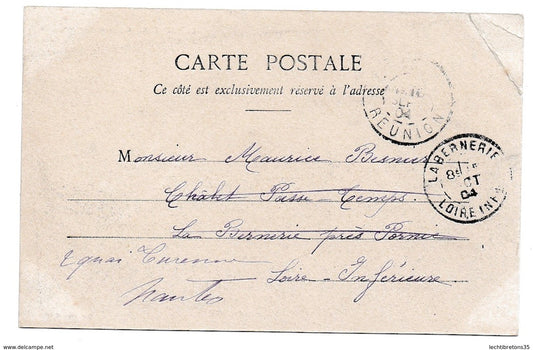 CARTE POSTALE
Ce côté est exclusivement réservé à l'adresse
SEPT
04
REUNION
Monsieur Maurice Besnier
Châlet Passe-Temps.
La Bernerie près Pornic
Loire-Inférieure
2 quai Turenne
Nantes
LA BERNERIE
8
OCT
04
LOIRE INFRE
www.delcampe.net
lechtbretons35